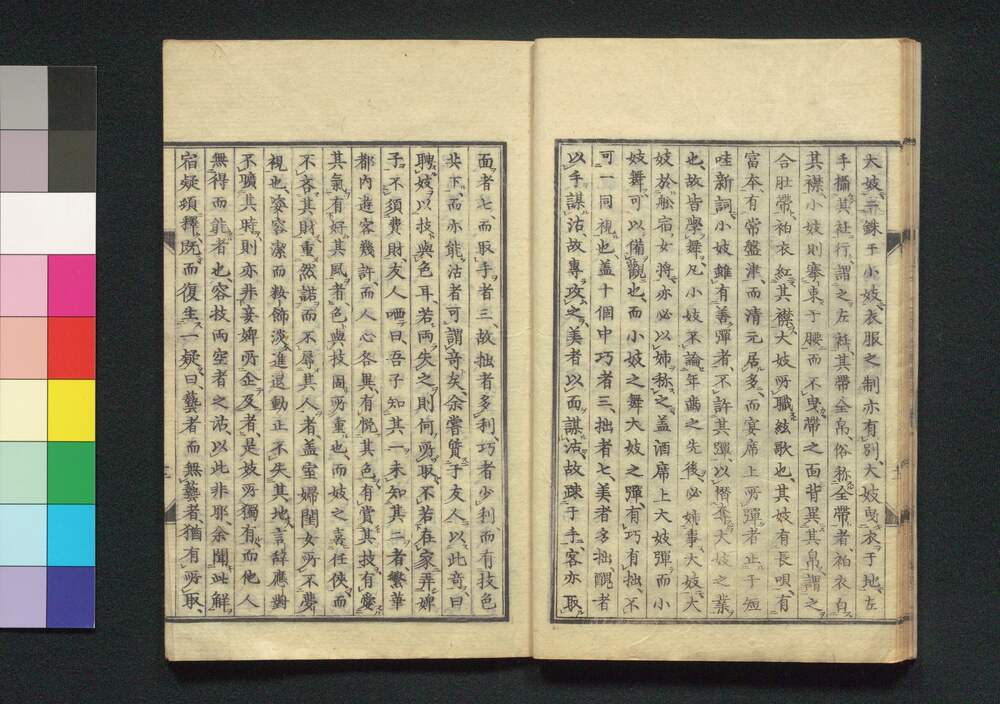 大妓二銖于小妓衣服之制亦有別大妓曳衣于地左
手攝其衽行謂之左衽其帶全帛俗称全帶者袙衣白
其襟小妓則搴束于腰而不曳帶之面背異其帛謂之
合肚帶袙衣紅其襟大妓所職絃歌也其妓有長唄有
富本有常盤津而清元居多而宴席上所彈者止于短
哇新詞小妓雖有善彈者不許其彈以僭奪大妓之業
也故皆學舞凡小妓不論年齒之先後必姊事大妓大
妓於舩宿女將亦必以姉称之盖酒席上大妓彈而小
妓舞可以備觀也而小妓之舞大妓之彈有巧有拙不
可一同視也盖十個中巧者三拙者七美者多拙醜者
以手謀沽故專攻之美者以面謀沽故疎于手客亦取
面者七而取手者三故拙者多利巧者少利而有技色
共下而亦能沽者可謂竒矣余嘗質于友人以此竒曰
聘妓以技與色耳若兩失之則何所取不若在家弄婢
子不須費財友人哂曰吾子知其一未知其二者繁華
都內遊客幾許而人心各異有悅其色有賞其技有愛
其氣有好其風者色與技固所重也而妓之衷任俠而
不吝其財重然諾而不辱其人者盖室婦閨女所不夢
視也姿容潔而粧飾淡進退動止不失其地言辞應對
不曠其時則亦非妾婢所企及者是妓所獨有而他人
無得而能者也容技兩空者之沽以此非耶余聞此解
宿疑須釋既而復生一疑曰藝者而無藝者猶有所取